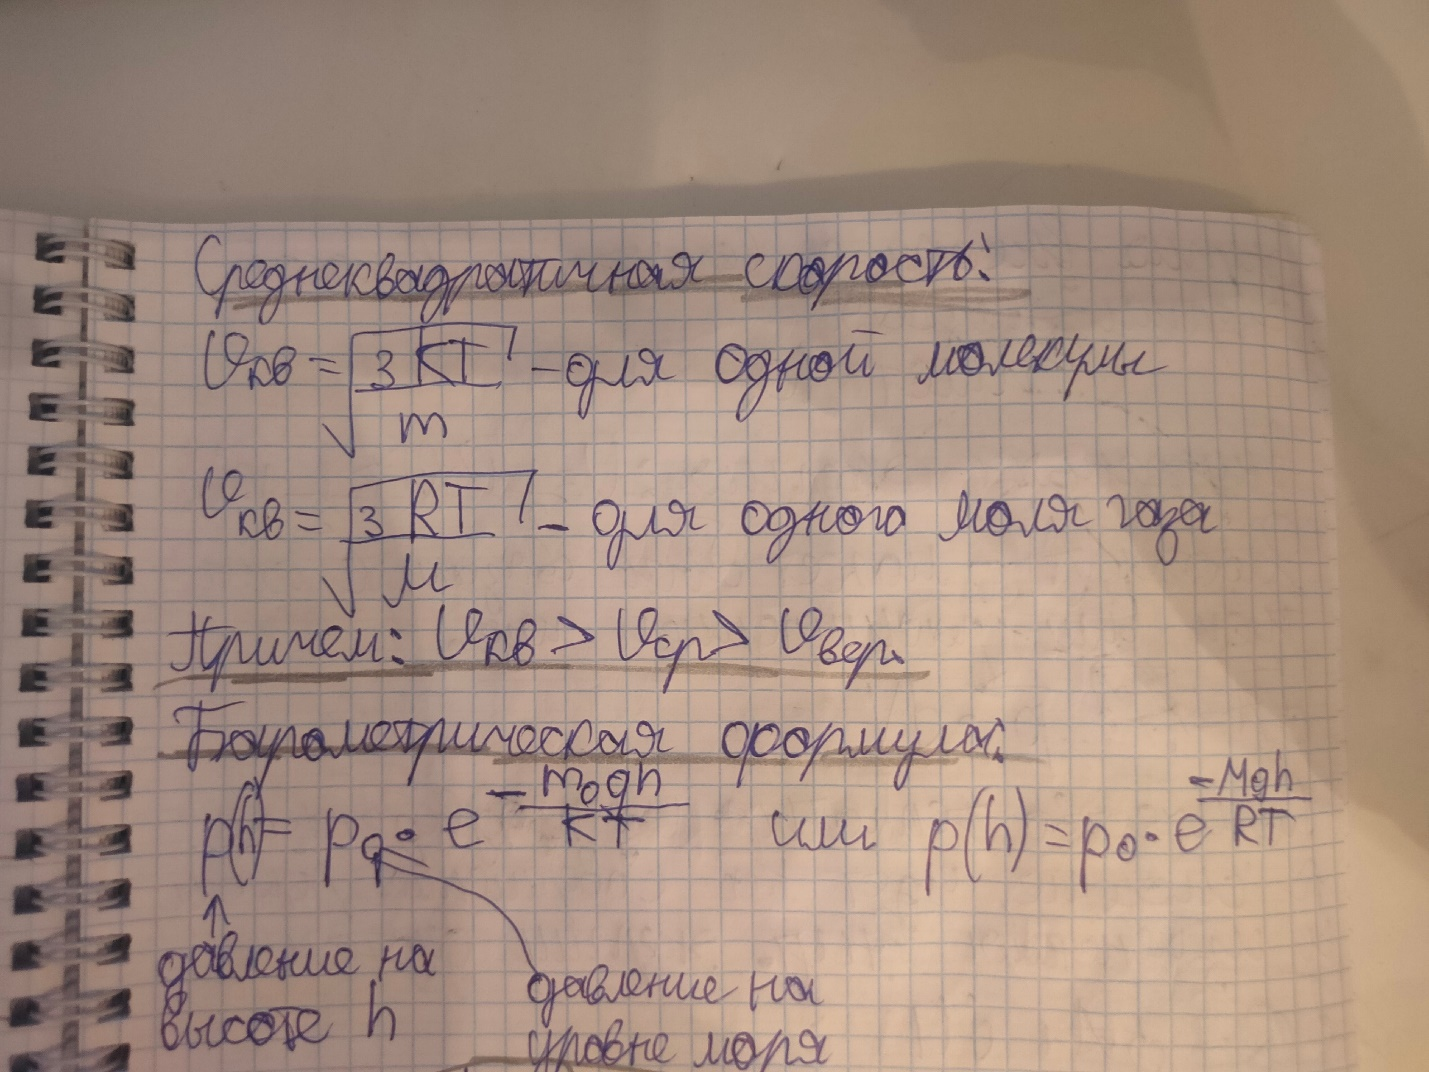 Среднеквадратичная скорость:
υкв = √(3KT/m) - для одной молекулы
υкв = √(3RT/M) - для одного моля газа
Причем: υкв > υср > υвер.
Барометрическая формула:
p(h) = p₀ · e^(-m₀gh/KT) или p(h) = p₀ · e^(-Mgh/RT)
давление на
высоте h
давление на
уровне моря